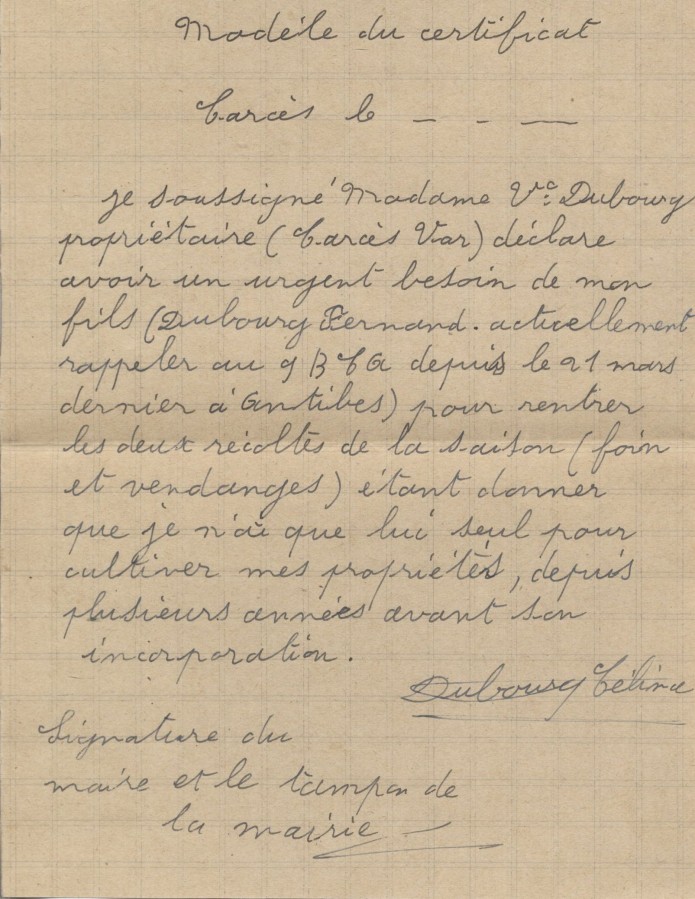 Modèle du certificat
Carcès le _ _ __
je soussigné Madame Ve Dubourg
propriétaire (Carcès Var) déclare
avoir un urgent besoin de mon
fils (Dubourg Fernand. actuellement
rappeler au 9 B C A depuis le 21 mars
dernier à Antibes) pour rentrer
les deux récoltes de la saison (foin
et vendanges) étant donner
que je n'ai que lui seul pour
cultiver mes propriétés, depuis
plusieurs années avant son
incorporation.
Dubourg Céline
Signature du
maire et le tampon de
la mairie